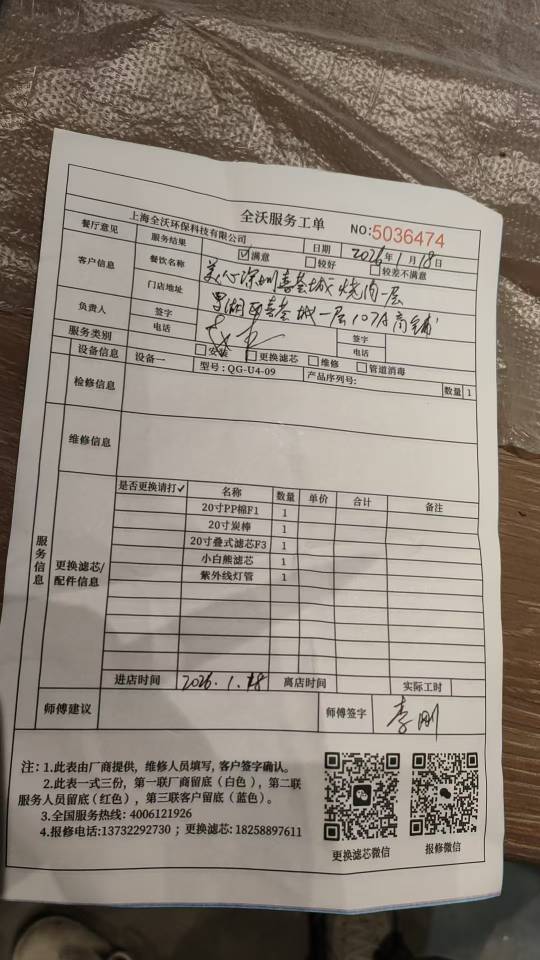 全沃服务工单
上海全沃环保科技有限公司 日期 2026年1月18日 NO:5036474
餐厅意见 服务结果 ☑满意 □较好 □较差不满意
客户信息 餐饮名称 深圳喜荟城 烧肉一层
门店地址 罗湖区喜荟城一层107A商铺
负责人 签字 签字
电话 电话
服务类别 □安装 □更换滤芯 □维修 □管道消毒
设备信息 设备一 型号: QG-U4-09 产品序列号: 数量 1
检修信息
维修信息
服务信息
更换滤芯/配件信息
是否更换请打✓ 名称 数量 单价 合计 备注
20寸PP棉F1 1
20寸炭棒 1
20寸叠式滤芯F3 1
小白熊滤芯 1
紫外线灯管 1
进店时间 2026.1.18 离店时间 实际工时
师傅建议 师傅签字 李刚
注：1.此表由厂商提供，维修人员填写，客户签字确认。
2.此表一式三份，第一联厂商留底（白色），第二联
服务人员留底（红色），第三联客户留底（蓝色）。
3.全国服务热线: 4006121926
4.报修电话:13732292730；更换滤芯: 18258897611
更换滤芯微信 报修微信